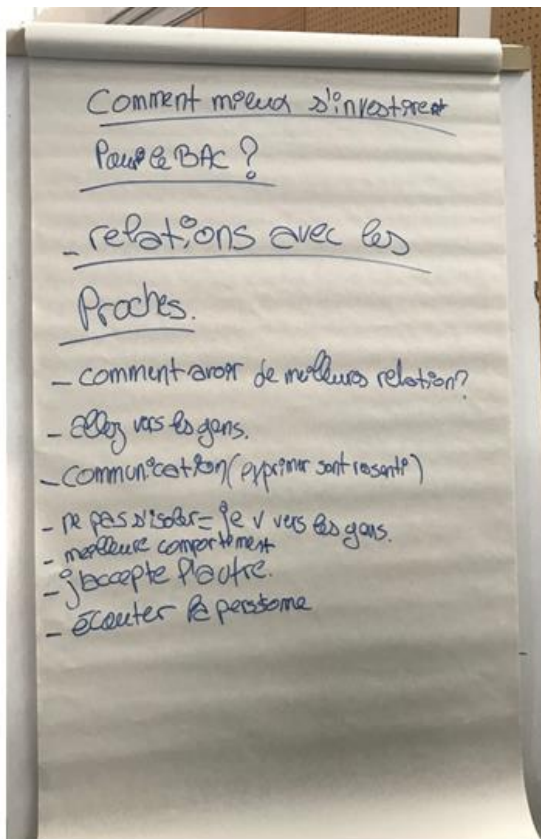 Comment mieux s'investirent
Pour le BAC ?
- relations avec les
Proches.
- comment avoir de meilleurs relation?
- allez vers les gens.
- communication (exprimer sont ressenti)
- ne pas s'isoler = je v vers les gens.
- meilleure comportement
- j'accepte l'autre.
- écouter la perssonne